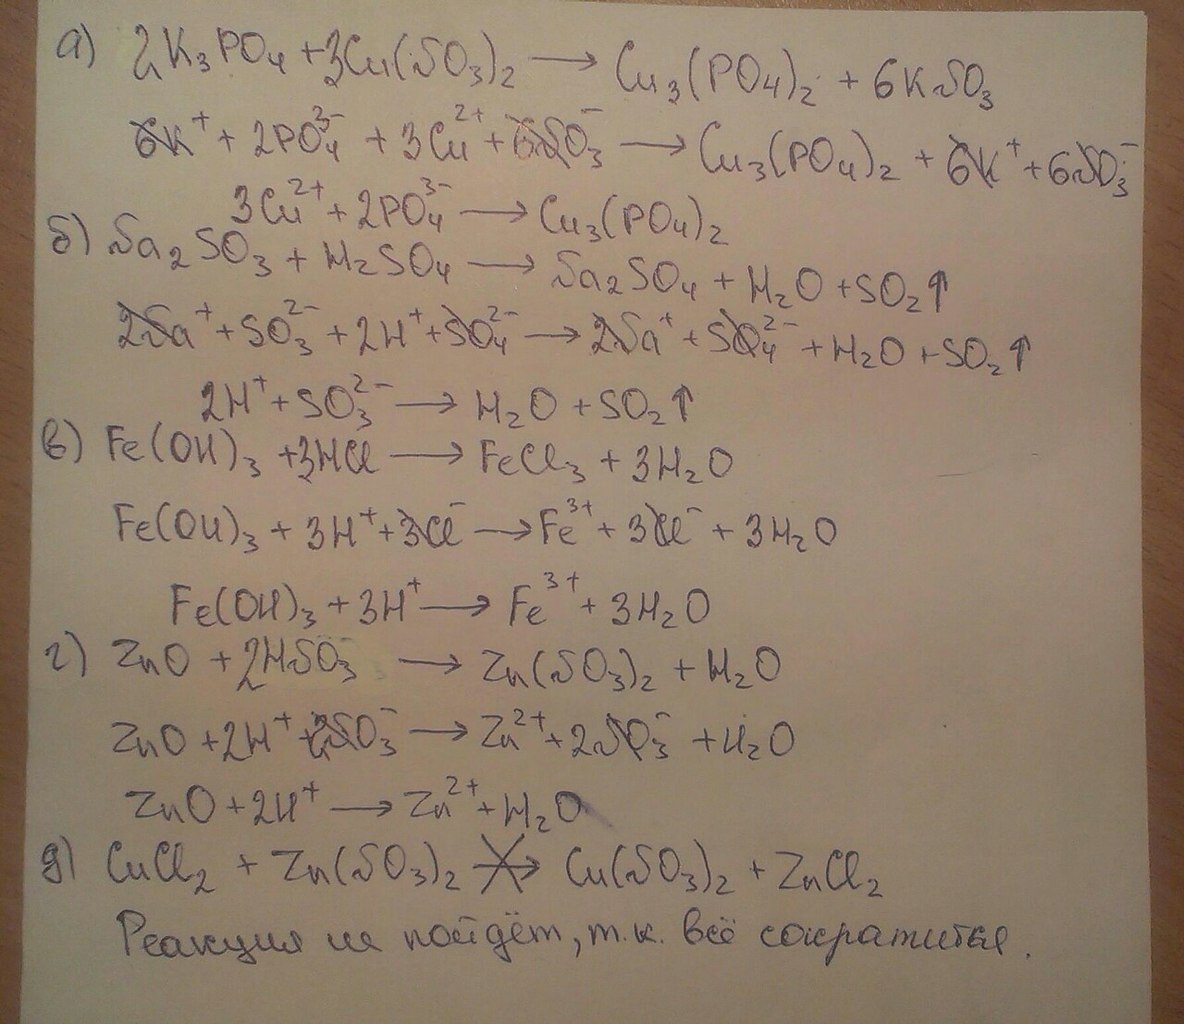 а) 2K₃PO₄ + 3Cu(NO₃)₂ → Cu₃(PO₄)₂ + 6KNO₃
6K⁺ + 2PO₄³⁻ + 3Cu²⁺ + 6NO₃⁻ → Cu₃(PO₄)₂ + 6K⁺ + 6NO₃⁻
3Cu²⁺ + 2PO₄³⁻ → Cu₃(PO₄)₂
б) Na₂SO₃ + H₂SO₄ → Na₂SO₄ + H₂O + SO₂↑
2Na⁺ + SO₃²⁻ + 2H⁺ + SO₄²⁻ → 2Na⁺ + SO₄²⁻ + H₂O + SO₂↑
2H⁺ + SO₃²⁻ → H₂O + SO₂↑
в) Fe(OH)₃ + 3HCl → FeCl₃ + 3H₂O
Fe(OH)₃ + 3H⁺ + 3Cl⁻ → Fe³⁺ + 3Cl⁻ + 3H₂O
Fe(OH)₃ + 3H⁺ → Fe³⁺ + 3H₂O
г) ZnO + 2HNO₃ → Zn(NO₃)₂ + H₂O
ZnO + 2H⁺ + 2NO₃⁻ → Zn²⁺ + 2NO₃⁻ + H₂O
ZnO + 2H⁺ → Zn²⁺ + H₂O
д) CuCl₂ + Zn(NO₃)₂ ↛ Cu(NO₃)₂ + ZnCl₂
Реакция не пойдёт, т.к. всё сократится.